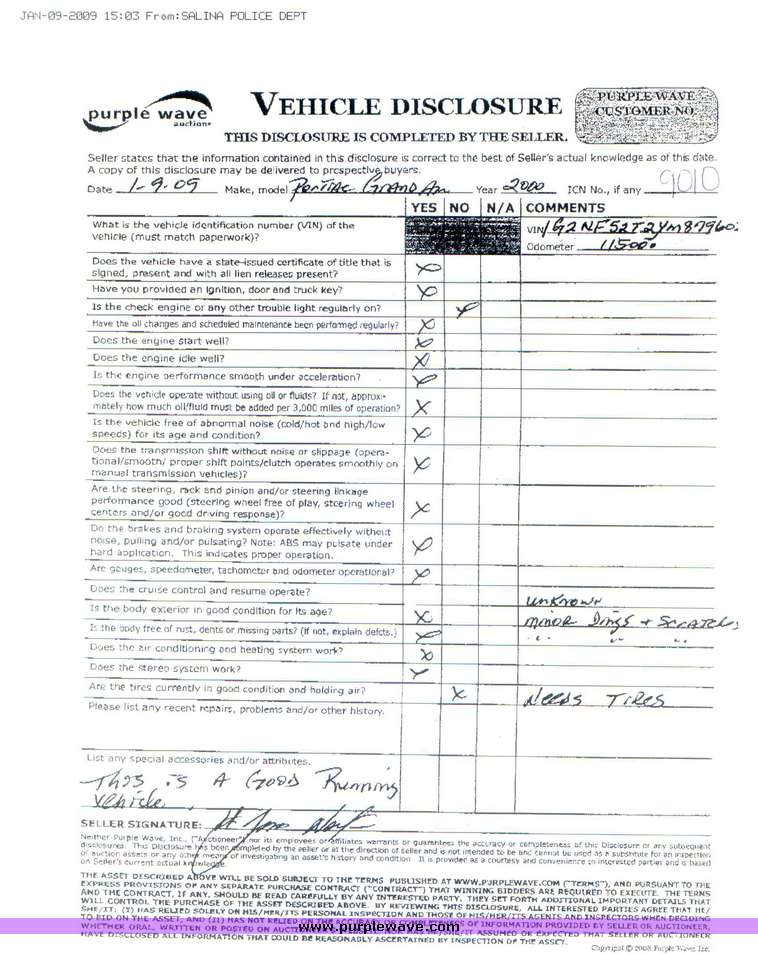 JAN-09-2009 15:03 From:SALINA POLICE DEPT
purple wave
auction
VEHICLE DISCLOSURE
PURPLE WAVE
CUSTOMER NO.
THIS DISCLOSURE IS COMPLETED BY THE SELLER.
Seller states that the information contained in this disclosure is correct to the best of Seller's actual knowledge as of this date.
A copy of this disclosure may be delivered to prospective buyers.
Date 1-9-09 Make, model Pontiac Grand Am Year 2000 ICN No., if any 9010
YES NO N/A COMMENTS
What is the vehicle identification number (VIN) of the VIN 1G2NF52T2YM87960
vehicle (must match paperwork)? Odometer 115000
Does the vehicle have a state-issued certificate of title that is
signed, present and with all lien releases present? X
Have you provided an ignition, door and truck key? X
Is the check engine or any other trouble light regularly on? X
Have the oil changes and scheduled maintenance been performed regularly? X
Does the engine start well? X
Does the engine idle well? X
Is the engine performance smooth under acceleration? X
Does the vehicle operate without using oil or fluids? If not, approxi-
mately how much oil/fluid must be added per 3,000 miles of operation? X
Is the vehicle free of abnormal noise (cold/hot and high/low
speeds) for its age and condition? X
Does the transmission shift without noise or slippage (opera-
tional/smooth/ proper shift points/clutch operates smoothly on X
manual transmission vehicles)?
Are the steering, rack and pinion and/or steering linkage
performance good (steering wheel free of play, steering wheel X
centers and/or good driving response)?
Do the brakes and braking system operate effectively without
noise, pulling and/or pulsating? Note: ABS may pulsate under X
hard application. This indicates proper operation.
Are gauges, speedometer, tachometer and odometer operational? X
Does the cruise control and resume operate? unknown
Is the body exterior in good condition for its age? X minor Dings + Scratches
Is the body free of rust, dents or missing parts? (if not, explain defcts.) X " " "
Does the air conditioning and heating system work? X
Does the stereo system work? X
Are the tires currently in good condition and holding air? X Needs Tires
Please list any recent repairs, problems and/or other history.
List any special accessories and/or attributes.
This is A Good Running
vehicle.
SELLER SIGNATURE:
Neither Purple Wave, Inc., ("Auctioneer") nor its employees or affiliates warrants or guarantees the accuracy or completeness of this Disclosure or any subsequent
disclosures. This Disclosure has been completed by the seller or at the direction of seller and is not intended to be and cannot be used as a substitute for an inspection
of auction assets or any other means of investigating an asset's history and condition. It is provided as a courtesy and convenience to interested parties and is based
on Seller's current actual knowledge.
THE ASSET DESCRIBED ABOVE WILL BE SOLD SUBJECT TO THE TERMS PUBLISHED AT WWW.PURPLEWAVE.COM ("TERMS"), AND PURSUANT TO THE
EXPRESS PROVISIONS OF ANY SEPARATE PURCHASE CONTRACT ("CONTRACT") THAT WINNING BIDDERS ARE REQUIRED TO EXECUTE. THE TERMS
AND THE CONTRACT, IF ANY, SHOULD BE READ CAREFULLY BY ANY INTERESTED PARTY. THEY SET FORTH ADDITIONAL IMPORTANT DETAILS THAT
WILL CONTROL THE PURCHASE OF THE ASSET DESCRIBED ABOVE. BY REVIEWING THIS DISCLOSURE, ALL INTERESTED PARTIES AGREE THAT HE/
SHE/IT: (I) HAS RELIED SOLELY ON HIS/HER/ITS PERSONAL INSPECTION AND THOSE OF HIS/HER/ITS AGENTS AND INSPECTORS WHEN DECIDING
TO BID ON THE ASSET; AND (II) HAS NOT RELIED ON THE ACCURACY OR COMPLETENESS OF INFORMATION PROVIDED BY SELLER OR AUCTIONEER,
WHETHER ORAL, WRITTEN OR POSTED ON ASSUMED OR EXPECTED THAT SELLER OR AUCTIONEER
www.purplewave.com
HAVE DISCLOSED ALL INFORMATION THAT COULD BE REASONABLY ASCERTAINED BY INSPECTION OF THE ASSET.
Copyright © 2008 Purple Wave Inc.